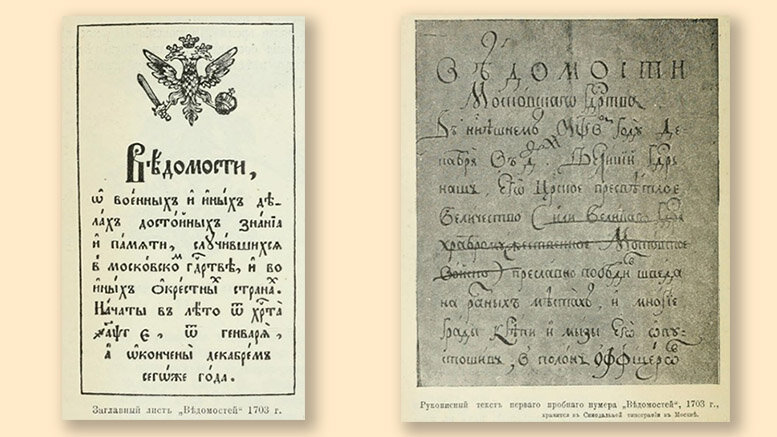 Вѣдомости,
ѿ военныхъ и иныхъ дѣ-
лахъ достойныхъ знанїа
и памяти, случившихся
в московско м гд҃рствѣ, и во
иныхъ окрестныхъ странахъ.
Начаты в лѣто ѿ хрⷭ҇та
҂аѱг е, ѿ генваря,
а окончены декабремъ
сегѡже года.
Заглавный листъ „Вѣдомостей" 1703 г.
Вѣдомости
Московскаго
нинѣшнемъ годъ де-
кабря
нашъ, его црское пресвѣтлое
величество
храбромужественное Московское
войско преславно побѣди шведа
на разныхъ мѣстахъ, и многїе
грады и мызы его опу-
стошивъ, в полонъ оффицеровъ
Рукописный текстъ перваго пробнаго нумера „Вѣдомостей", 1703 г.,
хранится въ Синодальной типографіи въ Москвѣ.